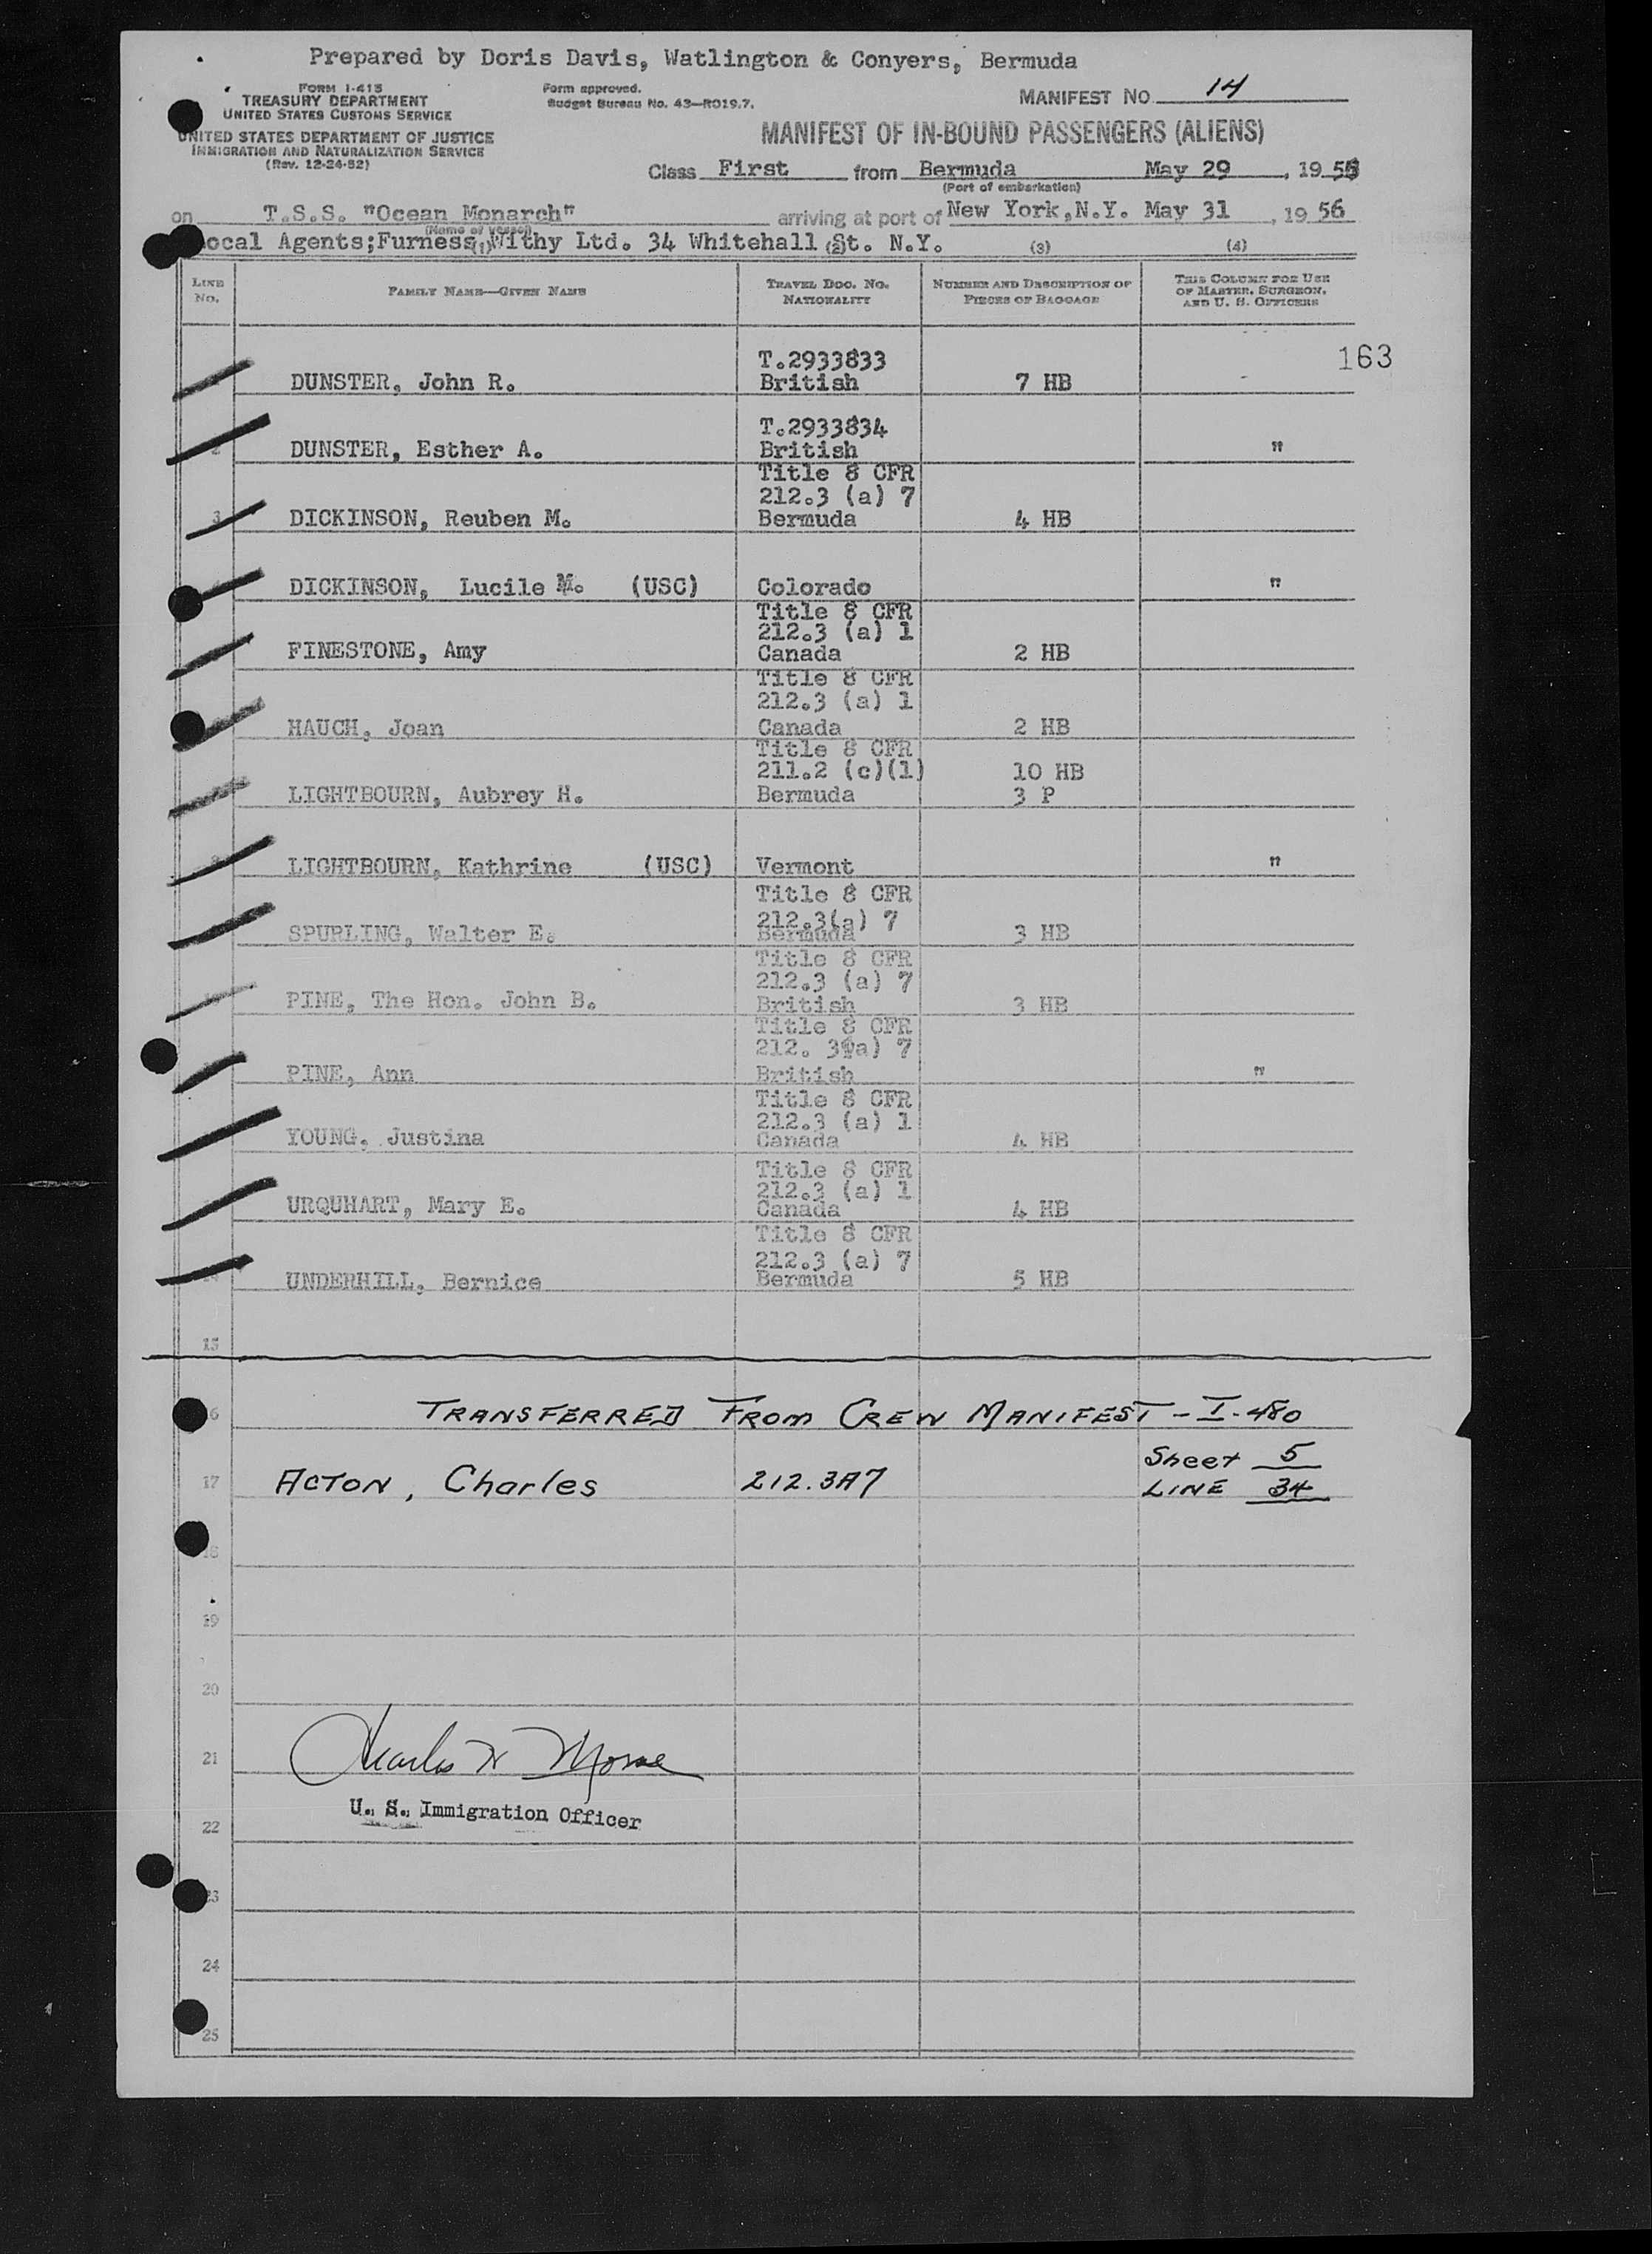 Prepared by Doris Davis, Watlington & Conyers, Bermuda
FORM I-415
TREASURY DEPARTMENT
UNITED STATES CUSTOMS SERVICE
UNITED STATES DEPARTMENT OF JUSTICE
IMMIGRATION AND NATURALIZATION SERVICE
(Rev. 12-24-52)
Form approved.
Budget Bureau No. 43—R019.7.
MANIFEST NO 14
MANIFEST OF IN-BOUND PASSENGERS (ALIENS)
Class First from Bermuda May 29, 1956
(Port of embarkation)
on T.S.S. "Ocean Monarch" arriving at port of New York, N.Y. May 31, 1956
(Name of vessel)
ocal Agents;Furness Withy Ltd. 34 Whitehall St. N.Y.
(1) (2) (3) (4)
LINE NO.
FAMILY NAME—GIVEN NAME
TRAVEL DOC. NO. NATIONALITY
NUMBER AND DESCRIPTION OF PIECES OF BAGGAGE
THIS COLUMN FOR USE OF MASTER, SURGEON, AND U. S. OFFICERS
163
T.2933833
DUNSTER, John R. British 7 HB
T.2933834
2 DUNSTER, Esther A. British "
Title 8 CFR
212.3 (a) 7
3 DICKINSON, Reuben M. Bermuda 4 HB
DICKINSON, Lucile M. (USC) Colorado "
Title 8 CFR
212.3 (a) 1
FINESTONE, Amy Canada 2 HB
Title 8 CFR
212.3 (a) 1
HAUCH, Joan Canada 2 HB
Title 8 CFR
211.2 (c)(1) 10 HB
LIGHTBOURN, Aubrey H. Bermuda 3 P
LIGHTBOURN, Kathrine (USC) Vermont "
Title 8 CFR
212.3(a) 7
SPURLING, Walter E. Bermuda 3 HB
Title 8 CFR
212.3 (a) 7
PINE, The Hon. John B. British 3 HB
Title 8 CFR
212. 3(a) 7
PINE, Ann British "
Title 8 CFR
212.3 (a) 1
YOUNG. Justina Canada 4 HB
Title 8 CFR
212.3 (a) 1
URQUHART, Mary E. Canada 4 HB
Title 8 CFR
212.3 (a) 7
14 UNDERHILL, Bernice Bermuda 5 HB
15
6 TRANSFERRED FROM CREW MANIFEST - I-480
Sheet 5
17 ACTON, Charles 212.3A7 LINE 34
18
19
20
21 Charles H Morse
U. S. Immigration Officer
22
23
24
25